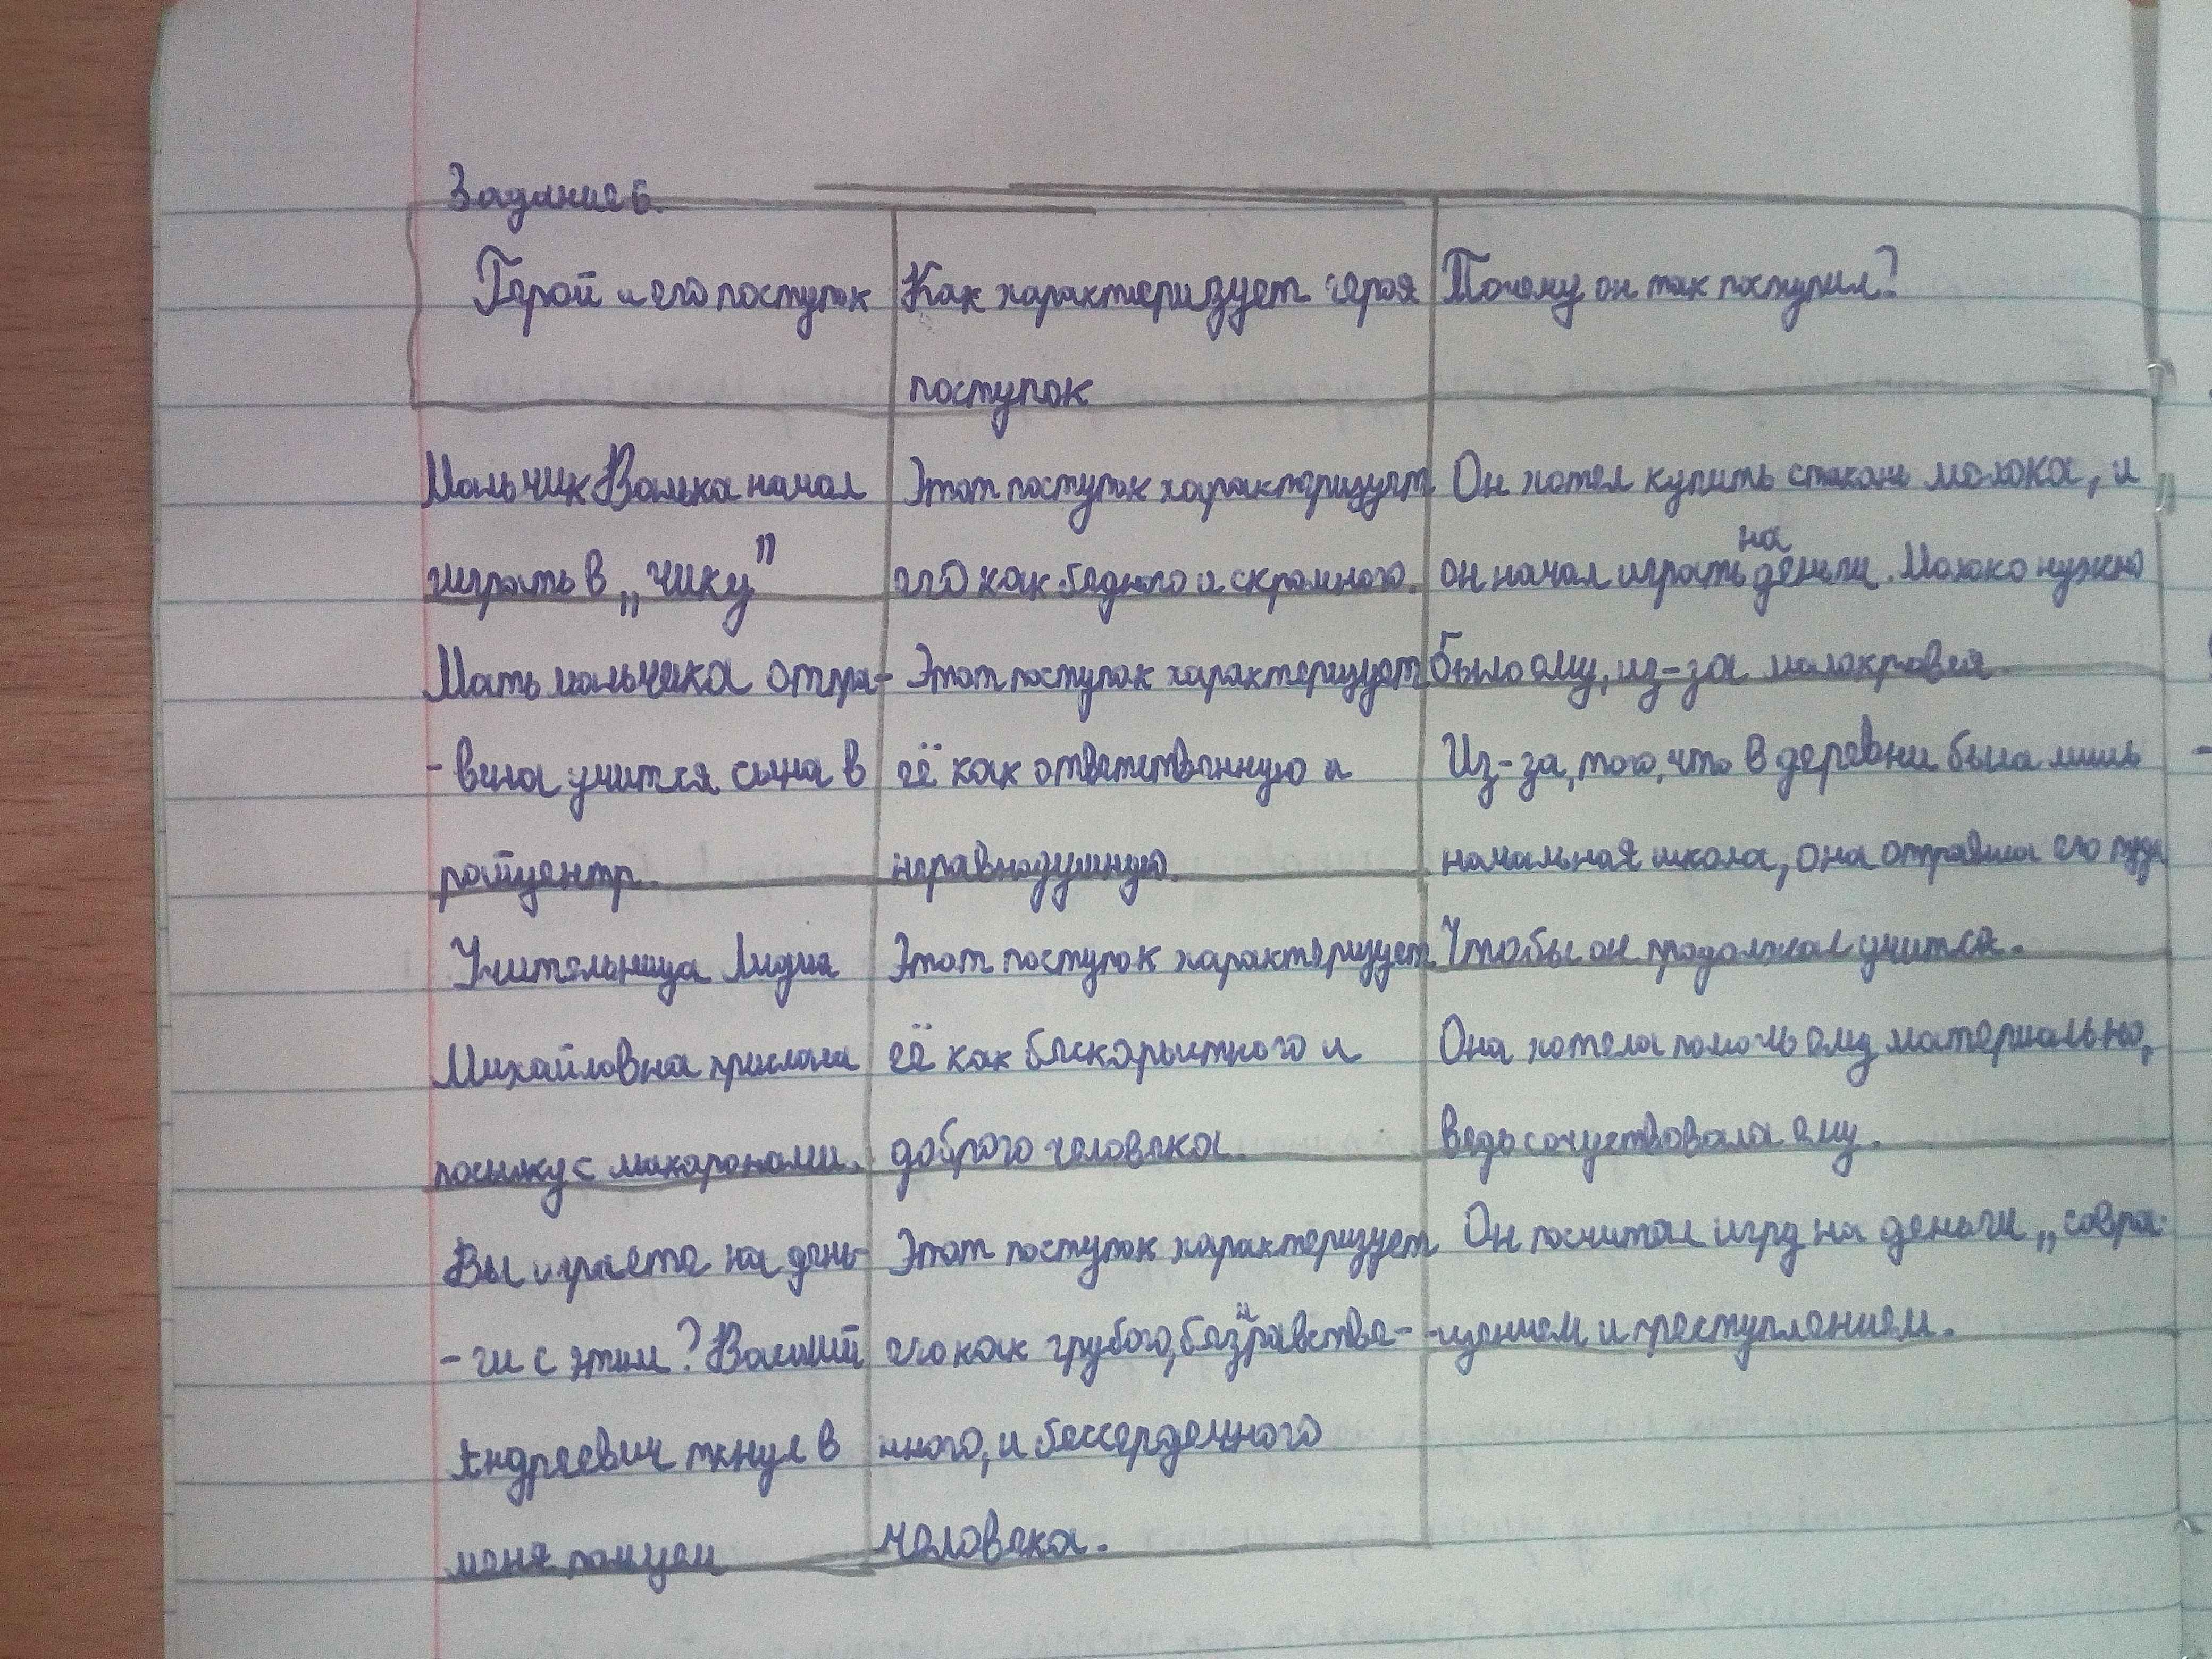 Задание 6.
Герой и его поступок
Как характеризует героя
поступок
Почему он так поступил?
Мальчик Волька начал
играть в „чику"
Этот поступок характеризует
его как бедного и скромного.
Он хотел купить стакань молока, и
он начал играть на деньги. Молоко нужно
было ему, из-за малокровия.
Мать мальчика отпра-
-вила учится сына в
райцентр.
Этот поступок характеризует
её как ответственную и
неравнодушную.
Из-за, того, что в деревни была лишь
начальная школа, она отправила его туда
Чтобы он продолжал учится.
Учительница Лидия
Михайловна прислала
посылку с макаронами.
Этот поступок характеризует
её как бескорыстного и
доброго человека.
Она хотела помочь ему материально,
ведь сочуствовала ему.
Вы играете на день-
-ги с этим? Василий
Андреевич ткнул в
меня пальцем
Этот поступок характеризует
его как грубого, безнравстве-
нного, и бессердечного
человека.
Он посчитал игру на деньги „совра-
-щением и преступлением.